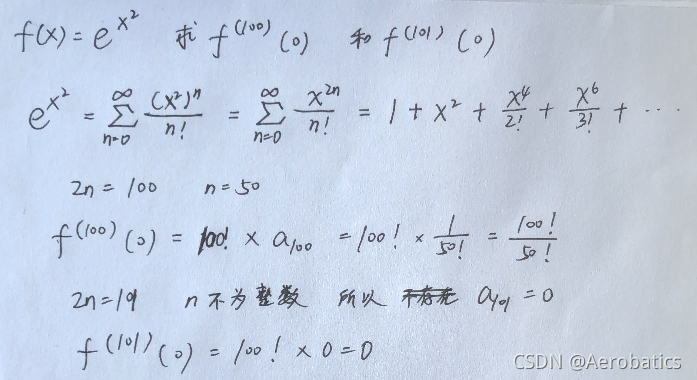 f(x) = e^{x^2} 求 f^{(100)}(0) 和 f^{(101)}(0)
e^{x^2} = \sum_{n=0}^{∞} \frac{(x^2)^n}{n!} = \sum_{n=0}^{∞} \frac{x^{2n}}{n!} = 1 + x^2 + \frac{x^4}{2!} + \frac{x^6}{3!} + ⋯
2n = 100 n = 50
f^{(100)}(0) = 100! × a_{100} = 100! × \frac{1}{50!} = \frac{100!}{50!}
2n = 101 n 不为整数 所以 a_{101} = 0
f^{(101)}(0) = 100! × 0 = 0
CSDN @Aerobatics